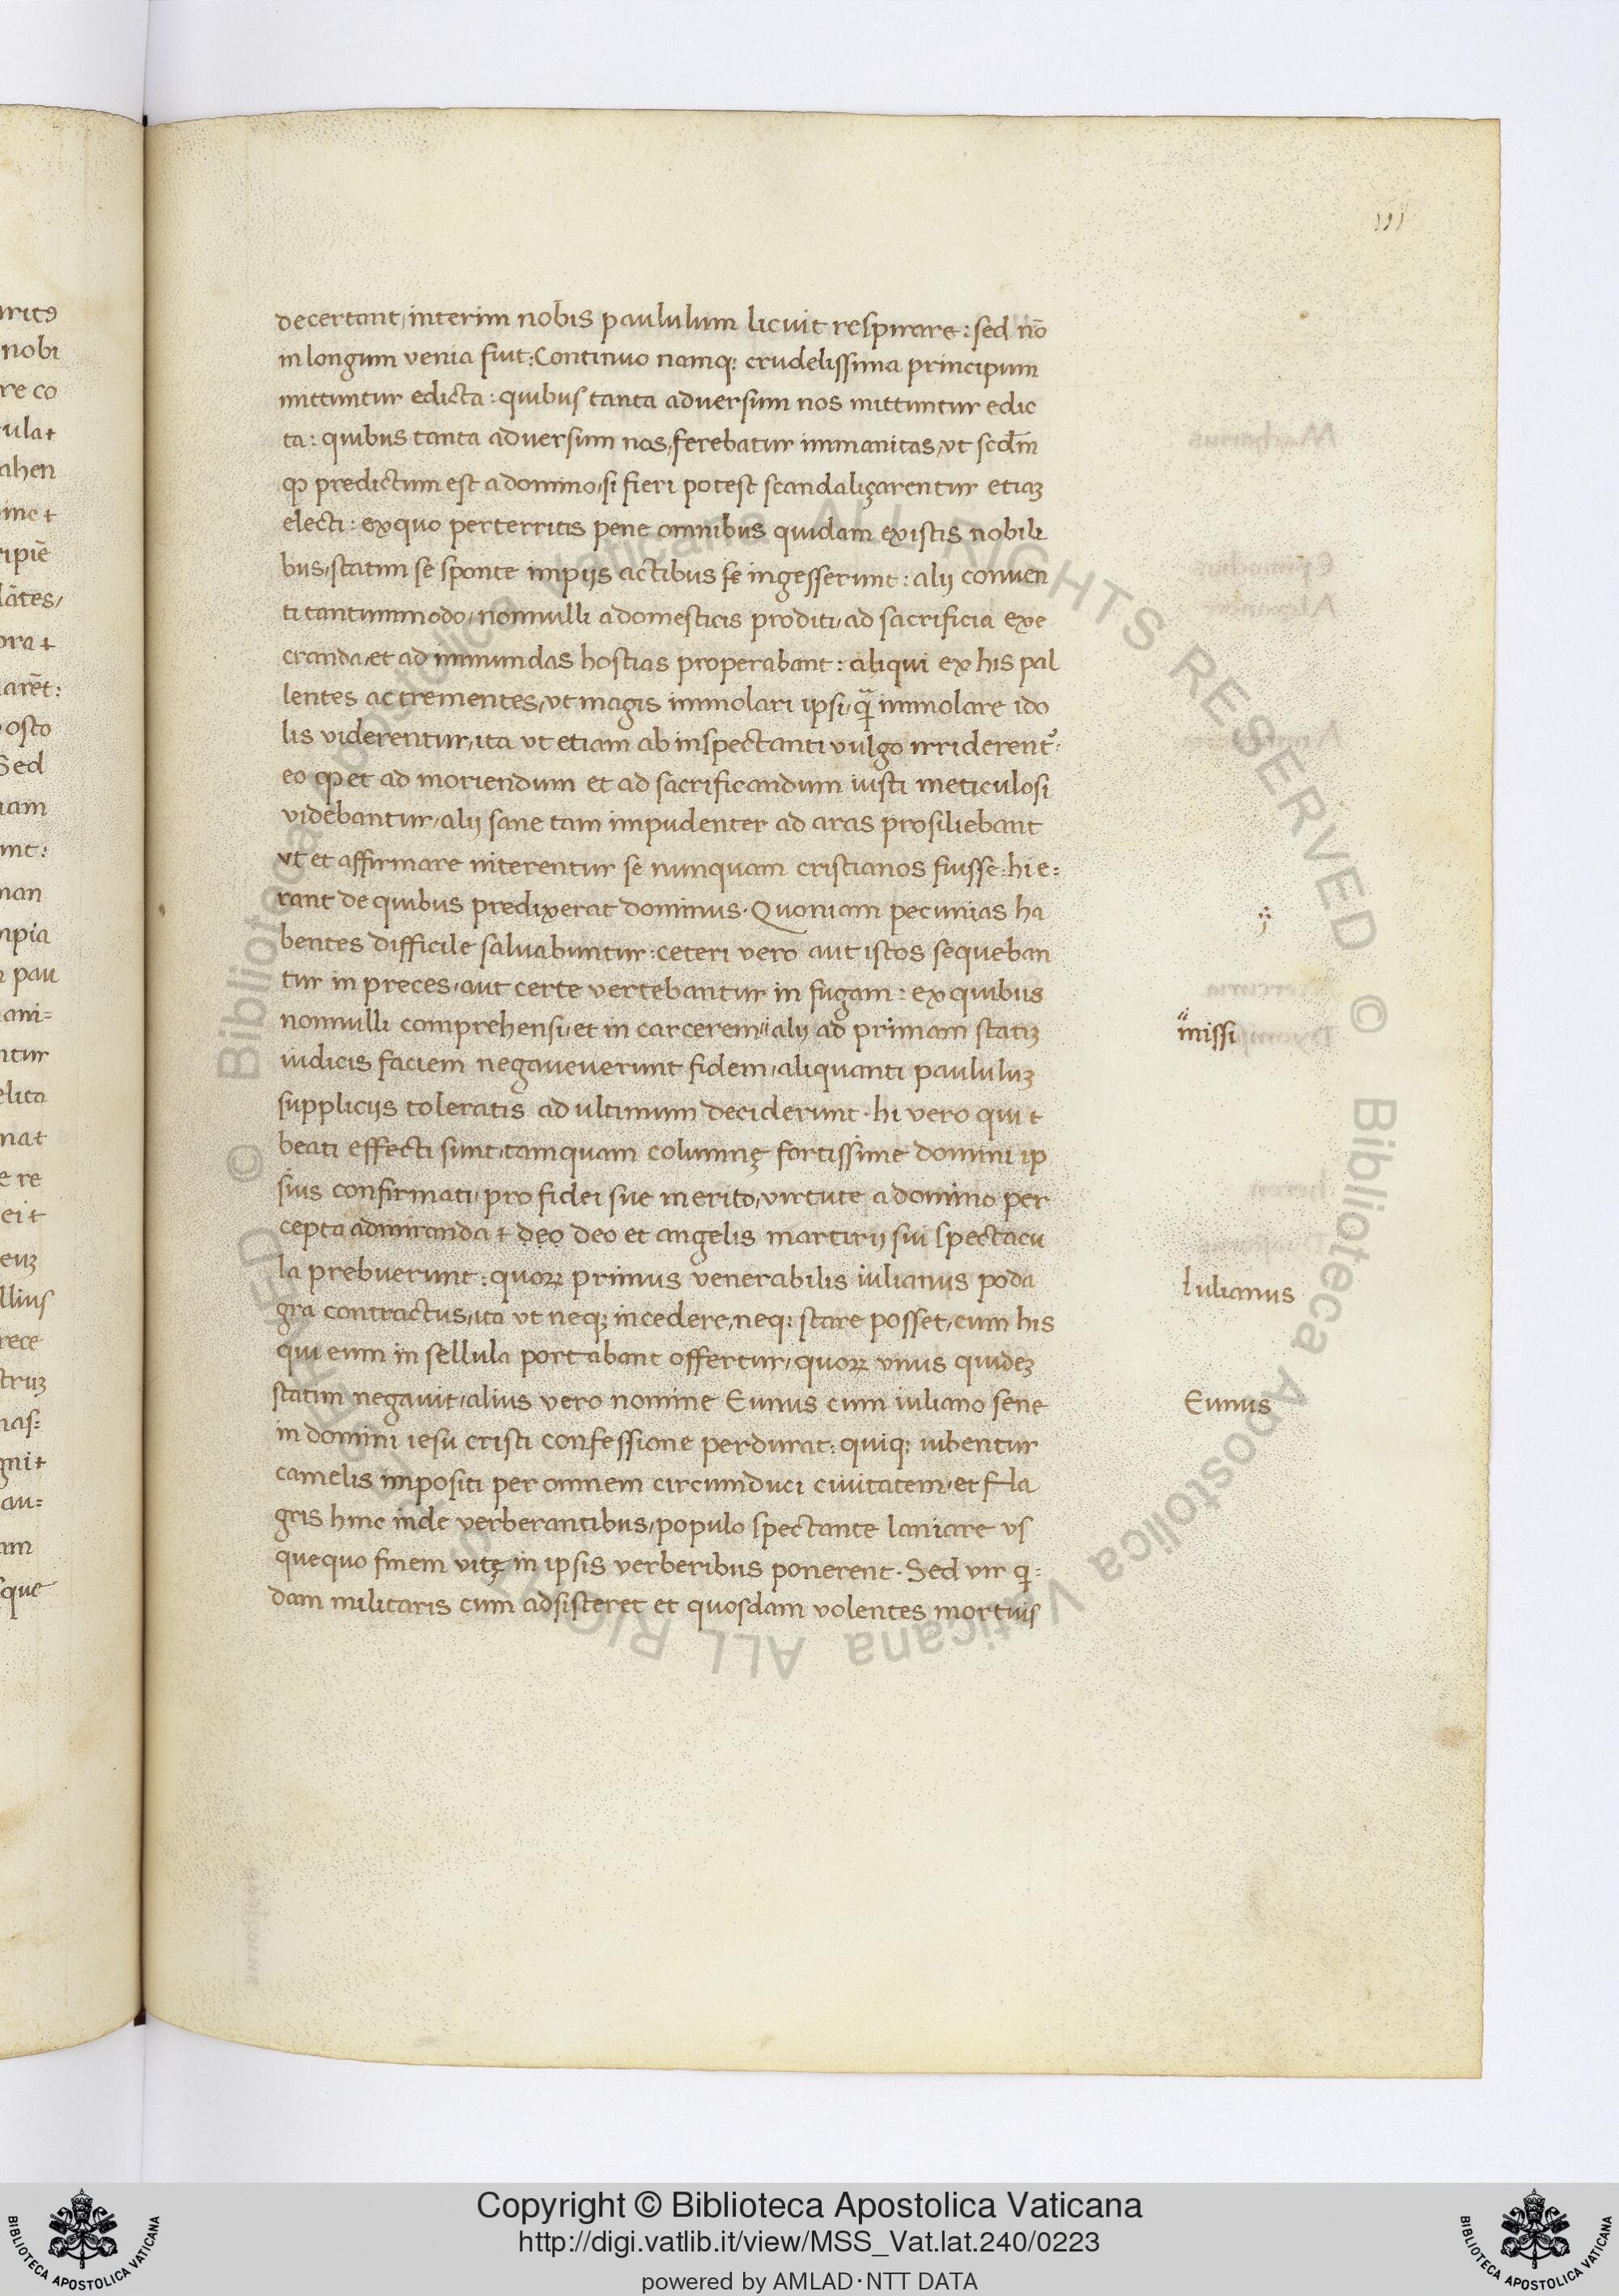 111
decertant, interim nobis paululum licuit respirare: sed nō
in longum venia fuit: Continuo namq; crudelissima principum
mittuntur edicta: quibus tanta adversum nos mittuntur edic
ta: quibus tanta adversum nos, ferebatur immanitas, ut scd̄m
ꝙ predictum est a domino, si fieri potest scandaliçarentur etiaʒ
electi: ex quo perterritis pene omnibus quidam ex istis nobili
bus, statim se sponte impijs actibus se ingesserunt: alij conven
ti tantummodo, nonnulli a domesticis proditi, ad sacrificia exe
cranda, et ad immundas hostias properabant: aliqui ex his pal
lentes ac trementes, ut magis immolari ipsi, qᷓ immolare ido
lis viderentur, ita ut etiam ab inspectanti vulgo irriderent᷑:
eo ꝙ et ad moriendum et ad sacrificandum iusti meticulosi
videbantur, alij sane tam impudenter ad aras prosiliebant
ut et affirmare niterentur se nunquam cristianos fuisse: hi e=
rant de quibus predixerat dominus. Quoniam pecunias ha
bentes difficile salvabuntur: ceteri vero aut istos sequeban
tur in preces, aut certe vertebantur in fugam: ex quibus
nonnulli comprehensi, et in carcerem alij ad primam statiʒ
missi
iudicis faciem negaveverunt fidem, aliquanti paululuʒ
supplicijs toleratis ad ultimum deciderunt. hi vero qui &
beati effecti sunt, tamquam columnę fortissime domini ip
sius confirmati, pro fidei sue merito, virtute a domino per
cepta admiranda & deo deo et angelis martirij sui spectacu
la prebuerunt: quoꝝ primus venerabilis iulianus poda
Iulianus
gra contractus, ita ut neq; incedere, neq; stare posset, cum his
qui eum in sellula portabant offertur, quoꝝ unus quideʒ
statim negavit, alius vero nomine Eunus cum iuliano sene
Eunus
in domini iesu cristi confessione perdurat: quiq; iubentur
camelis impositi per omnem circumduci civitatem, et fla
gris hinc inde verberantibus, populo spectante laniare us
quequo finem vitę in ipsis verberibus ponerent. Sed vir q̇=
dam militaris cum adsisteret et quosdam volentes mortuis
Copyright © Biblioteca Apostolica Vaticana
http://digi.vatlib.it/view/MSS_Vat.lat.240/0223
powered by AMLAD·NTT DATA